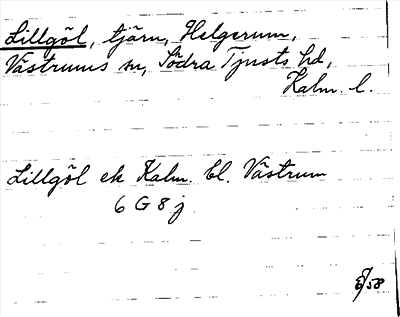 Lillgöl, tjärn, Helgerum,
Västrums sn, Södra Tjusts hd,
Kalm. l.
Lillgöl ek Kalm. bl. Västrum
6 G 8 j
58